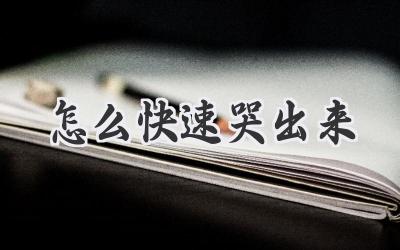 怎么快速哭出来